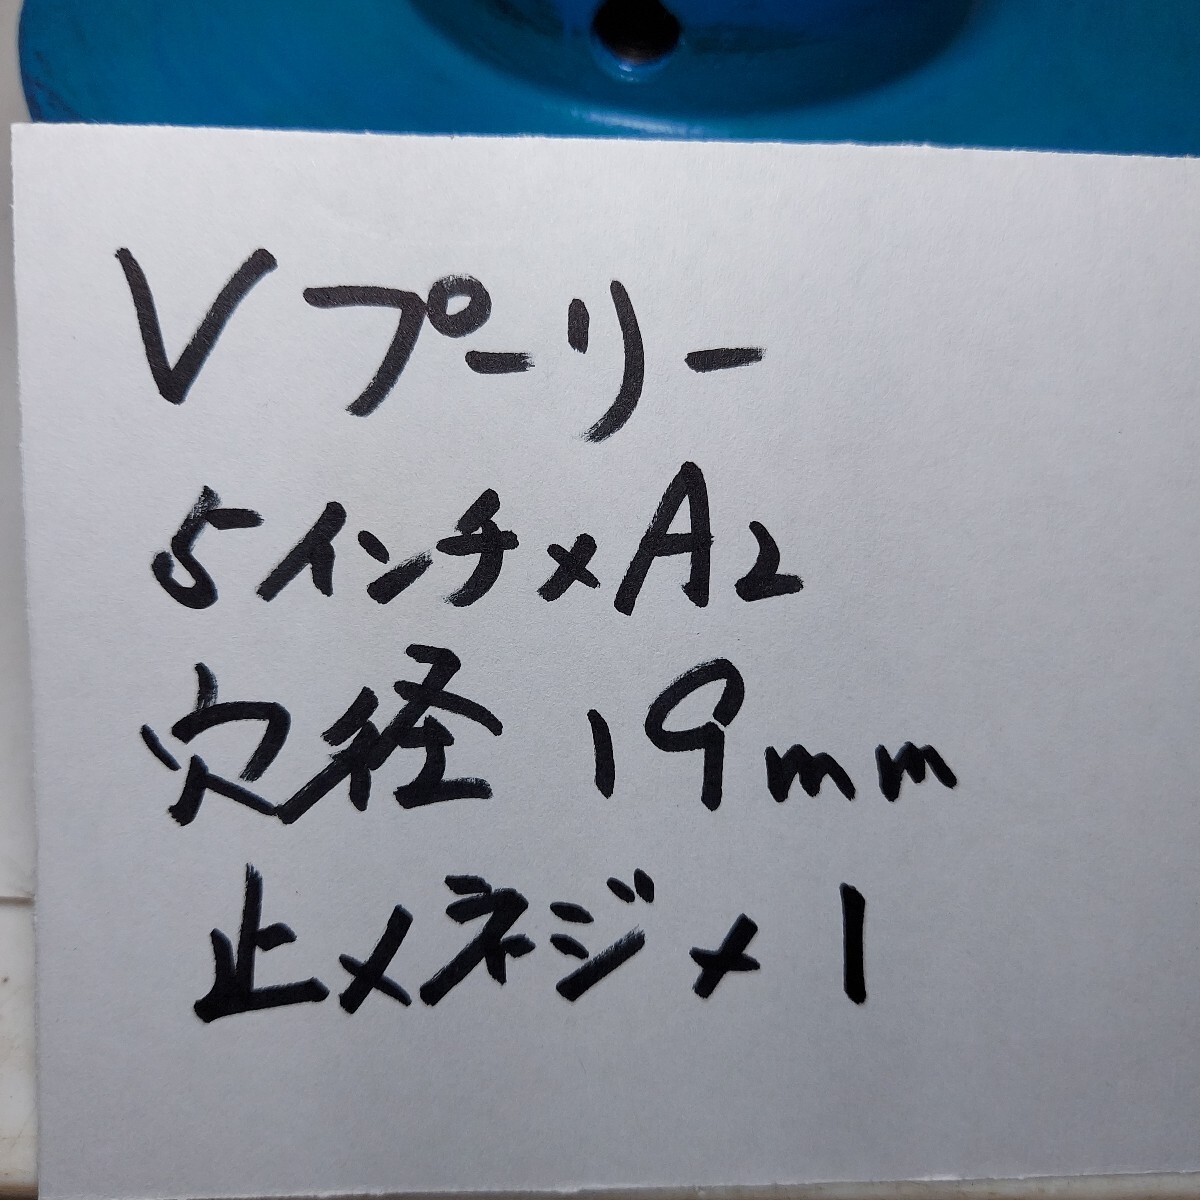 Vプーリー
5インチ×A2
穴径 19mm
止メネジ×1